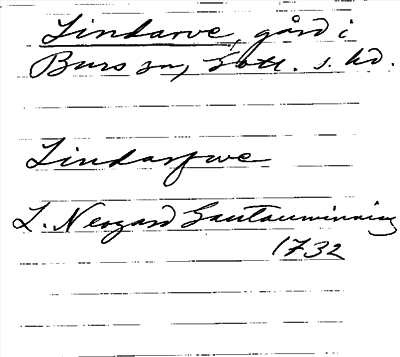 Lindarve, gård i
Burs sn, Gotl. s. hd.
Lindarfwe
L. Neogard Gautauminning
1732